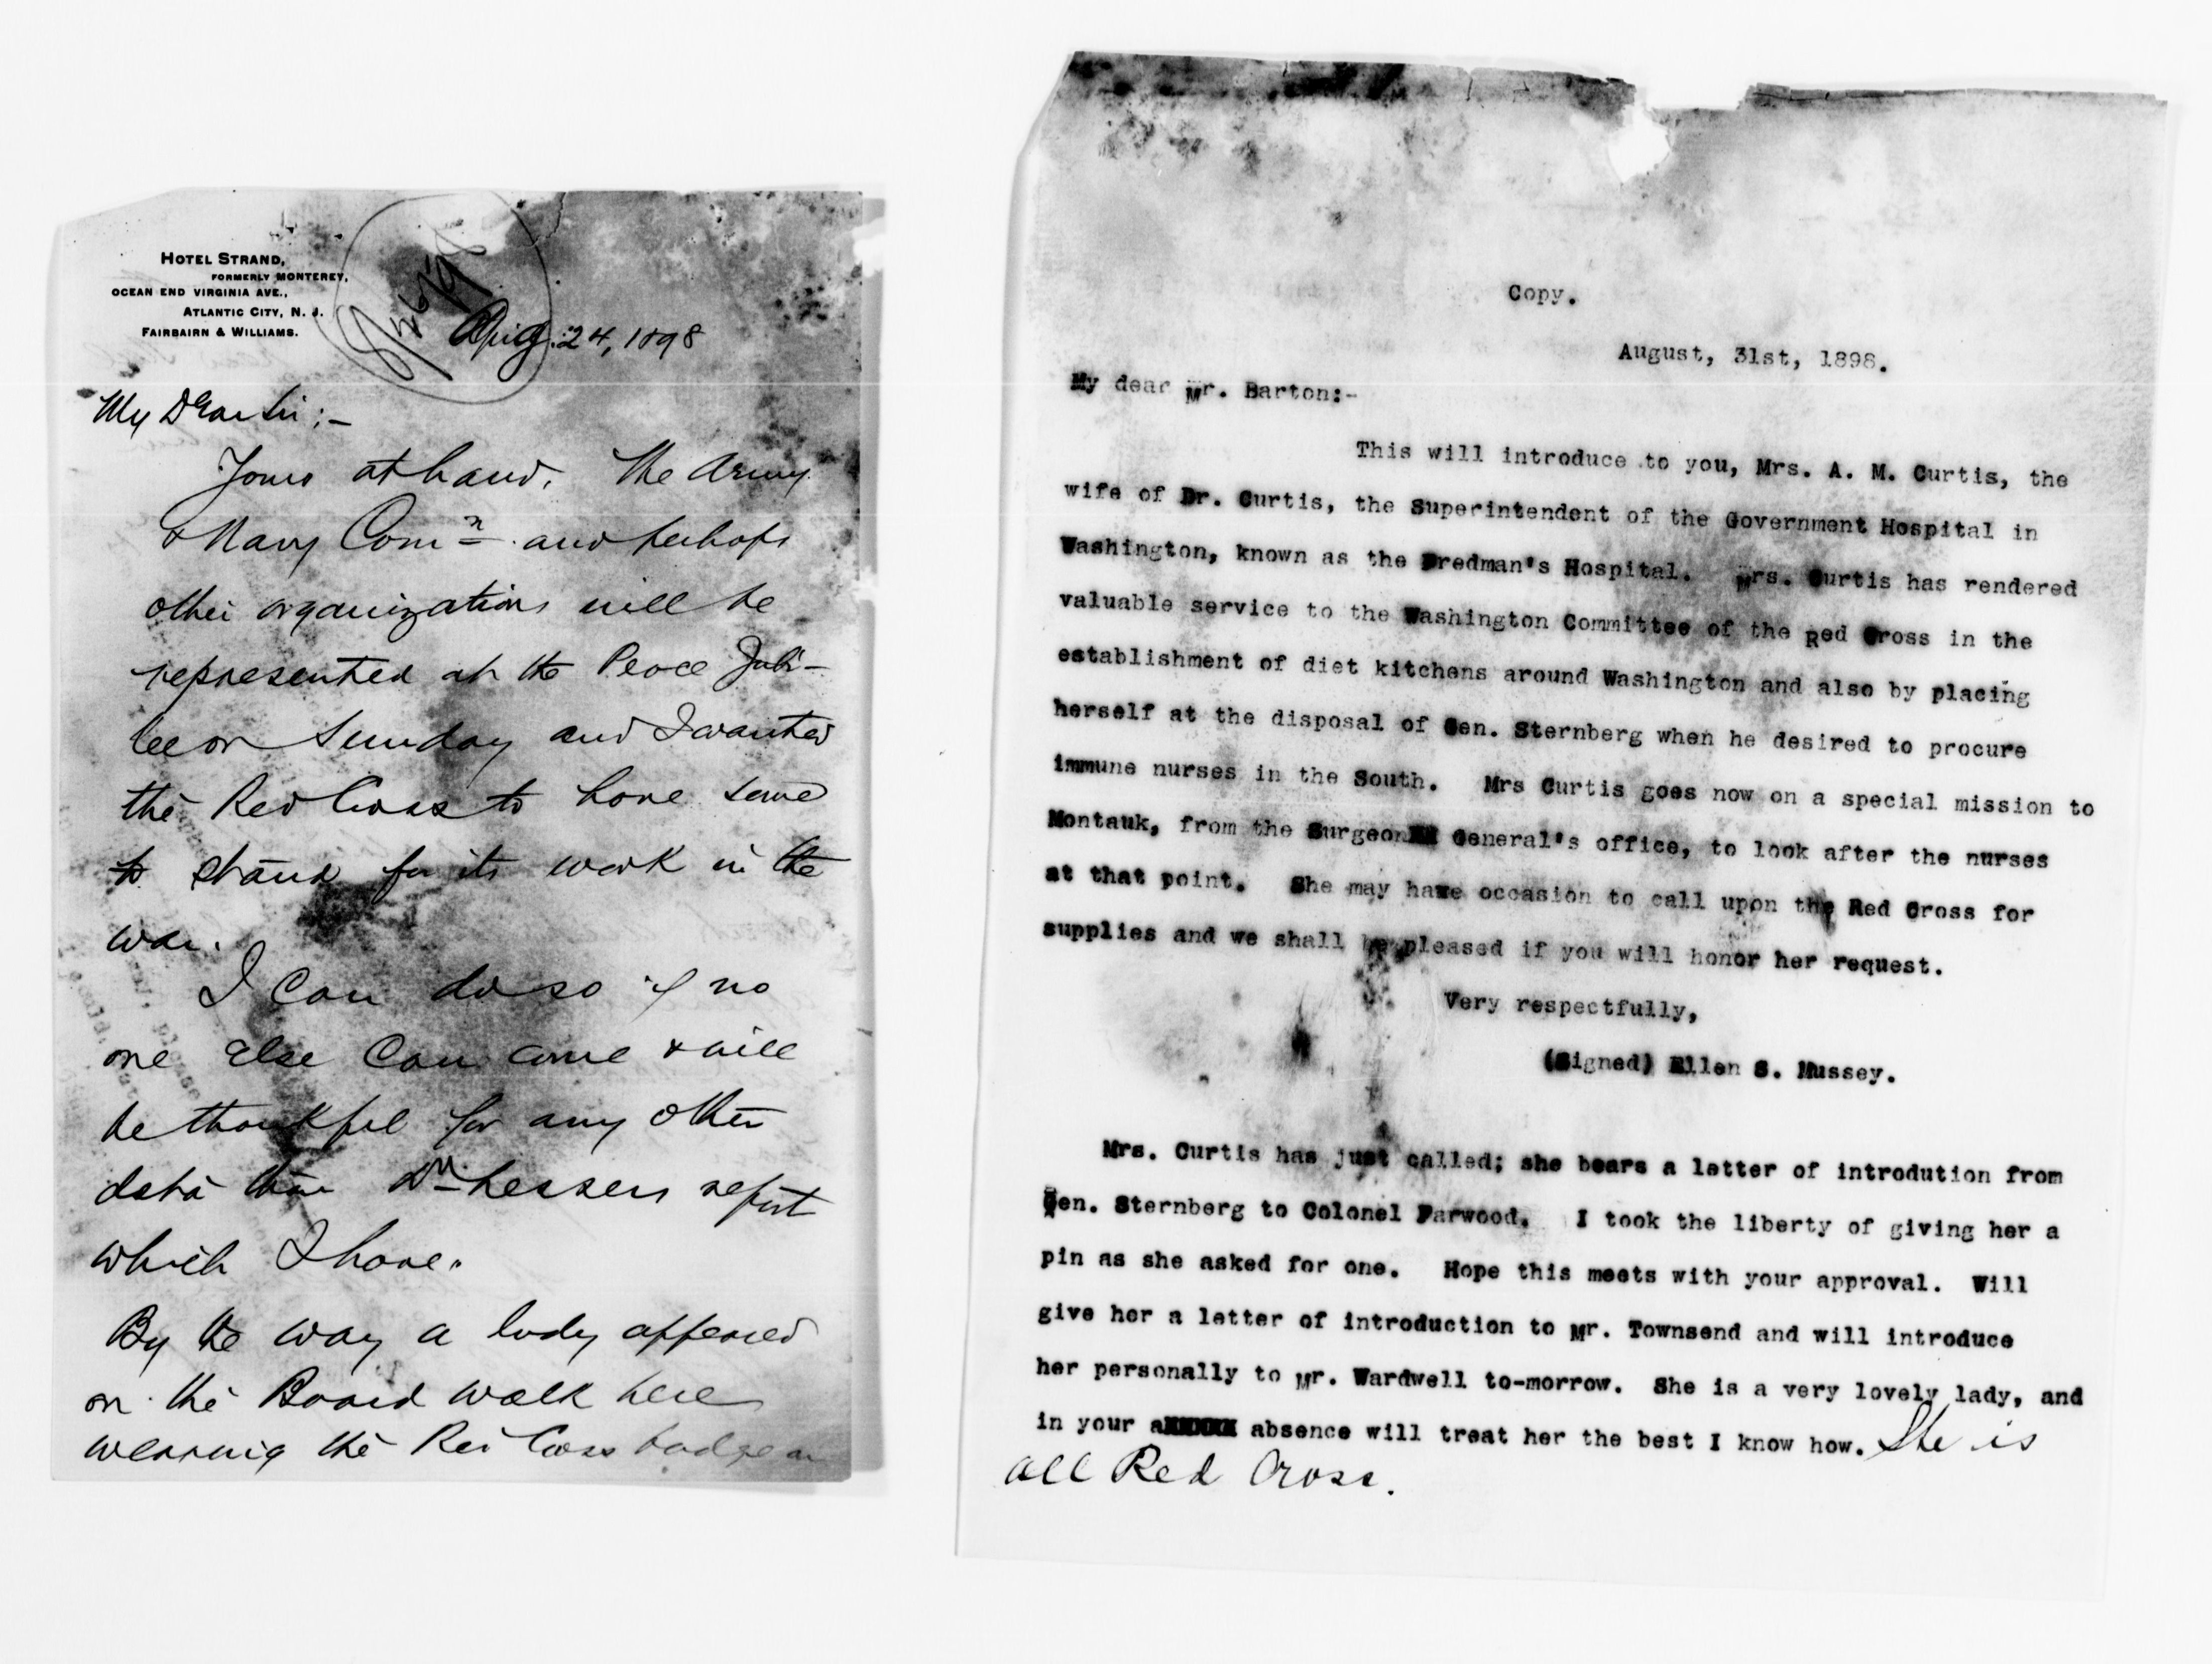 HOTEL STRAND,
FORMERLY MONTEREY,
OCEAN END VIRGINIA AVE.,
ATLANTIC CITY, N. J.
FAIRBAIRN & WILLIAMS.
Aug. 24, 1898
My Dear Sir:-
Yours at hand. The Army
& Navy Comn. and perhaps
other organizations will be
represented at the Peace Jubi-
lee on Sunday and I wanted
the Red Cross to have some
to stand for its work in the
war.
I can do so if no
one else can come & will
be thankful for any other
data than Dr. Lessers report
which I have.
By the way a lady appeared
on the Board walk here
wearing the Red Cross badge on
Copy.
August, 31st, 1898.
My dear Mr. Barton:-
This will introduce to you, Mrs. A. M. Curtis, the
wife of Dr. Curtis, the Superintendent of the Government Hospital in
Washington, known as the Fredman's Hospital. Mrs. Curtis has rendered
valuable service to the Washington Committee of the Red Cross in the
establishment of diet kitchens around Washington and also by placing
herself at the disposal of Gen. Sternberg when he desired to procure
immune nurses in the South. Mrs Curtis goes now on a special mission to
Montauk, from the Surgeon General's office, to look after the nurses
at that point. She may have occasion to call upon the Red Cross for
supplies and we shall be pleased if you will honor her request.
Very respectfully,
(Signed) Ellen S. Mussey.
Mrs. Curtis has just called; she bears a letter of introdution from
Gen. Sternberg to Colonel Farwood. I took the liberty of giving her a
pin as she asked for one. Hope this meets with your approval. Will
give her a letter of introduction to Mr. Townsend and will introduce
her personally to Mr. Wardwell to-morrow. She is a very lovely lady, and
in your absence will treat her the best I know how. She is
all Red Cross.